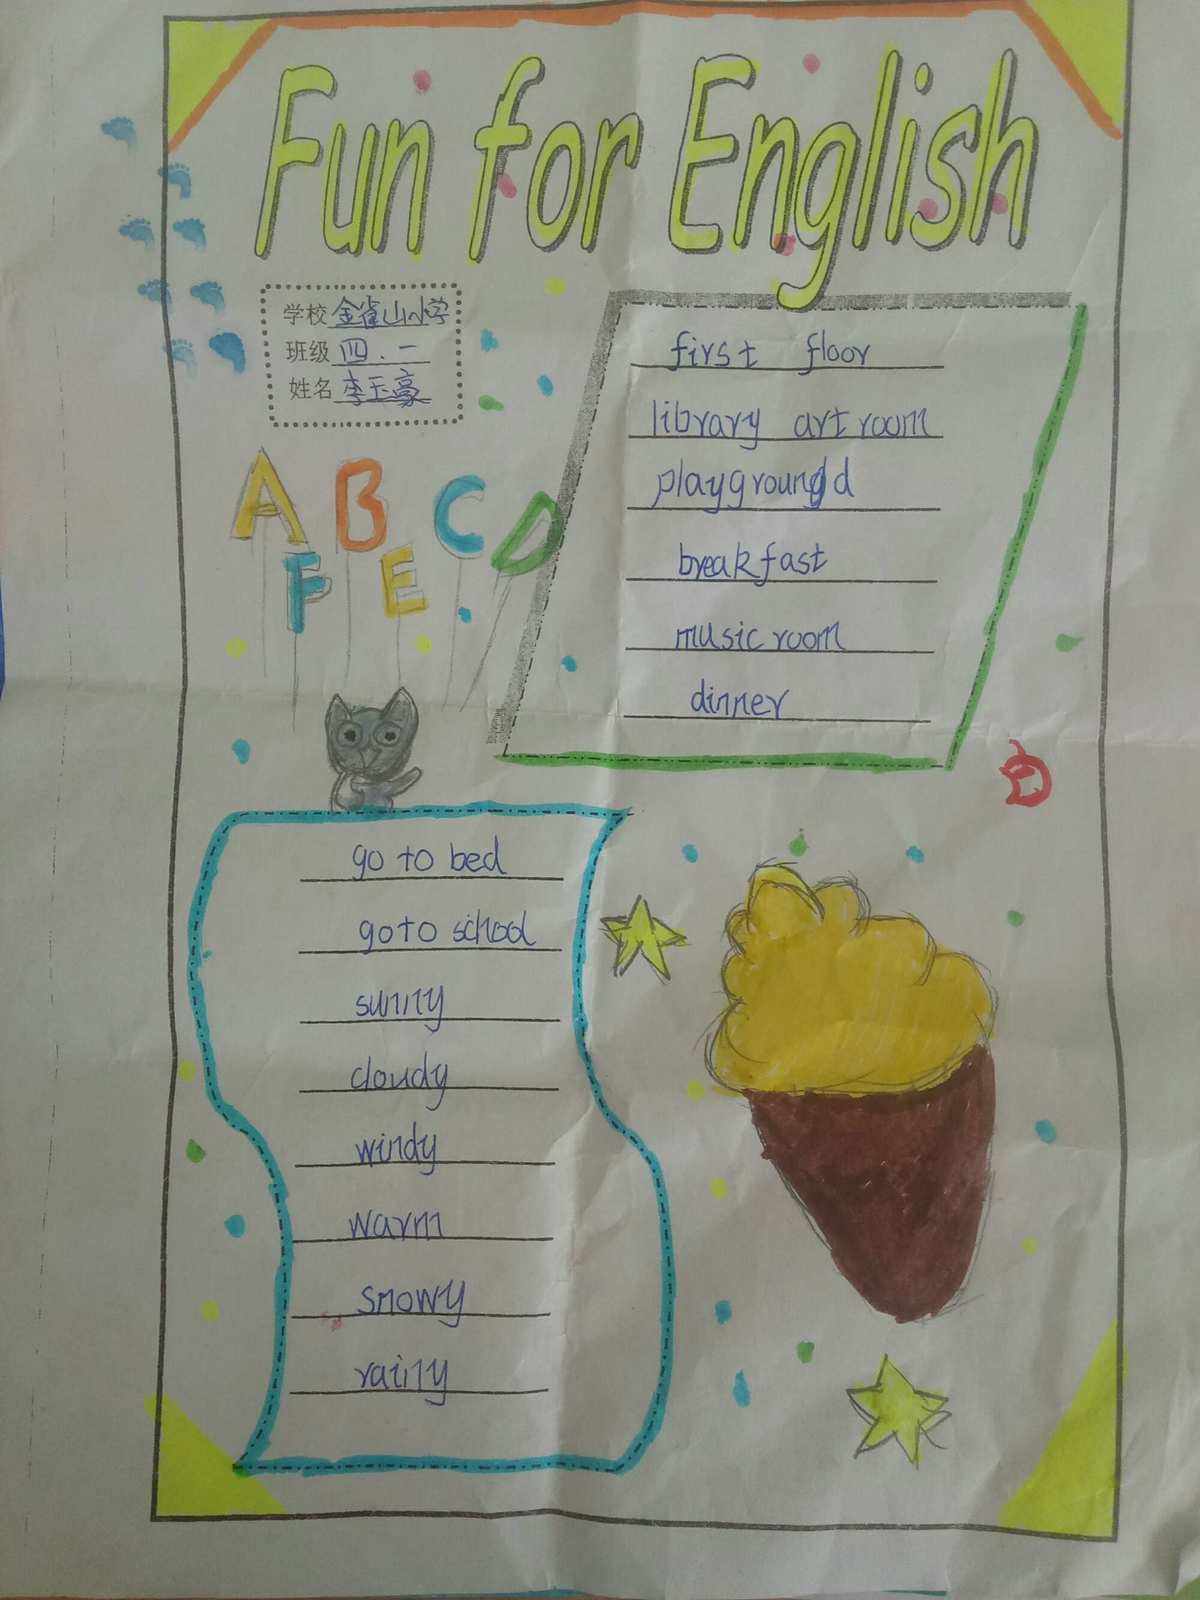 Fun for English
学校 金雀山小学
班级 四.一
姓名 李玉豪
first floor
library art room
playground
breakfast
music room
dinner
A B C D
F E
go to bed
go to school
sunny
cloudy
windy
warm
snowy
rainy